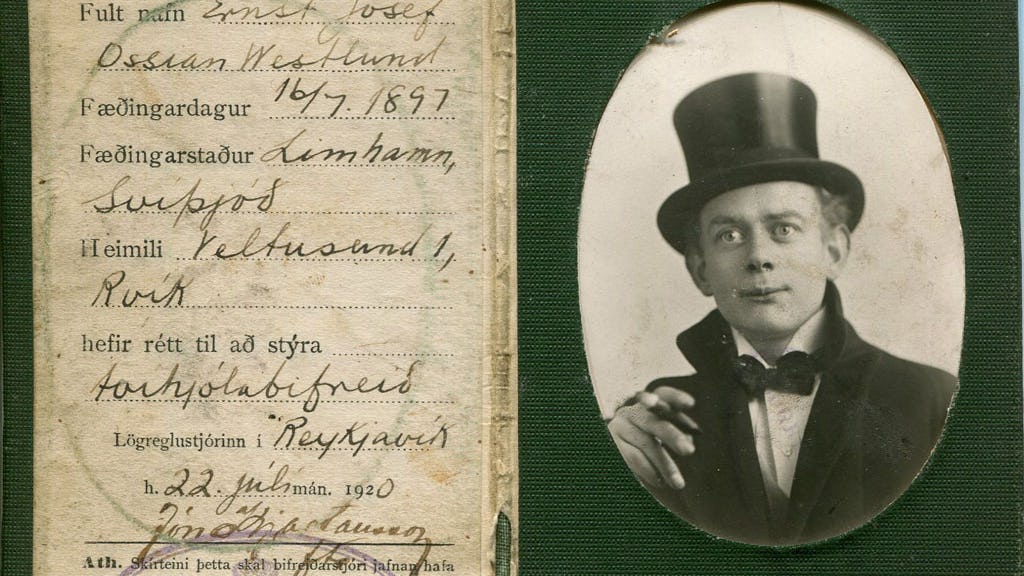 Fult nafn Ernst Josef
Ossian Westlund
Fæðingardagur 16/7. 1897
Fæðingarstaður Limhamn,
Svíþjóð
Heimili Veltusund 1,
Rvík
hefir rétt til að stýra
tvíhjólabifreið
Lögreglustjórinn í Reykjavík
h. 22. júlí mán. 1920
Jón
Ath. Skírteini þetta skal bifreiðarstjóri jafnan hafa